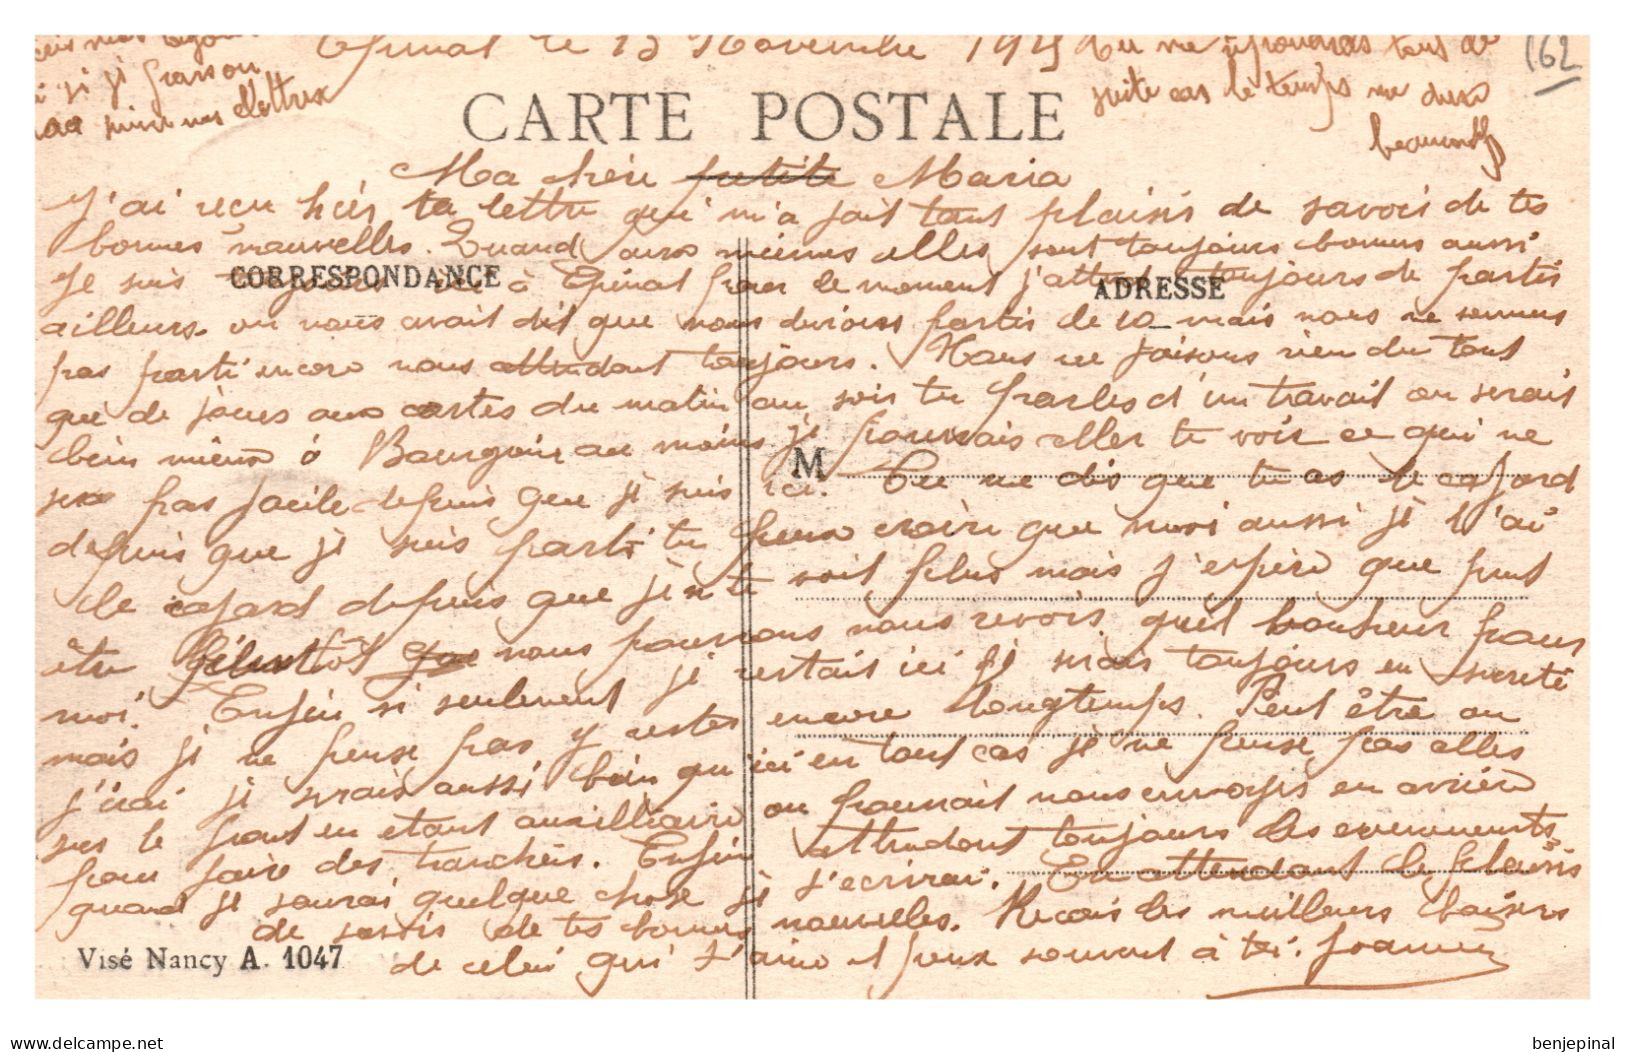 Epinal le 13 Novembre 1915
tu me répondras tout de
suite car le temps me dure
beaucoup
162
si je passe ou
mes lettres
CARTE POSTALE
Ma chère petite Maria
J'ai reçu hier ta lettre qui m'a fait tant plaisir de savoir de tes
bonnes nouvelles. Quand aux miennes elles sont toujours bonnes aussi
CORRESPONDANCE
ADRESSE
Je suis toujours ici à Epinal pour le moment j'attend toujours de partir
ailleurs on nous avait dit que nous devions partir le 10 mais nous ne sommes
pas parti encore nous attendont toujours. Nous ne faisons rien du tout
que de jouer aux cartes du matin au soir tu parles d'un travail on serais
bien mieux à Bourgoin au moins je pourrais aller te voir ce qui ne
M
sera pas facile depuis que je suis ici. Tu me dis que tu as le cafard
depuis que je suis parti tu peux croire que moi aussi je l'ai
le cafard depuis que je ne te voit plus mais j'espère que peut
être bientôt que nous pourrons nous revoir quel bonheur pour
moi. Enfin si seulement je restais ici je serais toujours en sureté
mais je ne pense pas y rester encore longtemps. Peut être ou
j'irai je serais aussi bien qu'ici en tout cas je ne pense pas aller
sur le front en etant auxilliaire on pourrait nous envoyer en arrière
pour faire des tranchées. Enfin attendont toujours les evenements
quand je saurai quelque chose je t'ecrirai. En attendant le plaisir
de savoir de tes bonnes nouvelles. Recois les meilleurs baisers
de celui qui t'aime et pense souvent à toi. Joannin
Visé Nancy A. 1047
delcampe.net
benjepinal